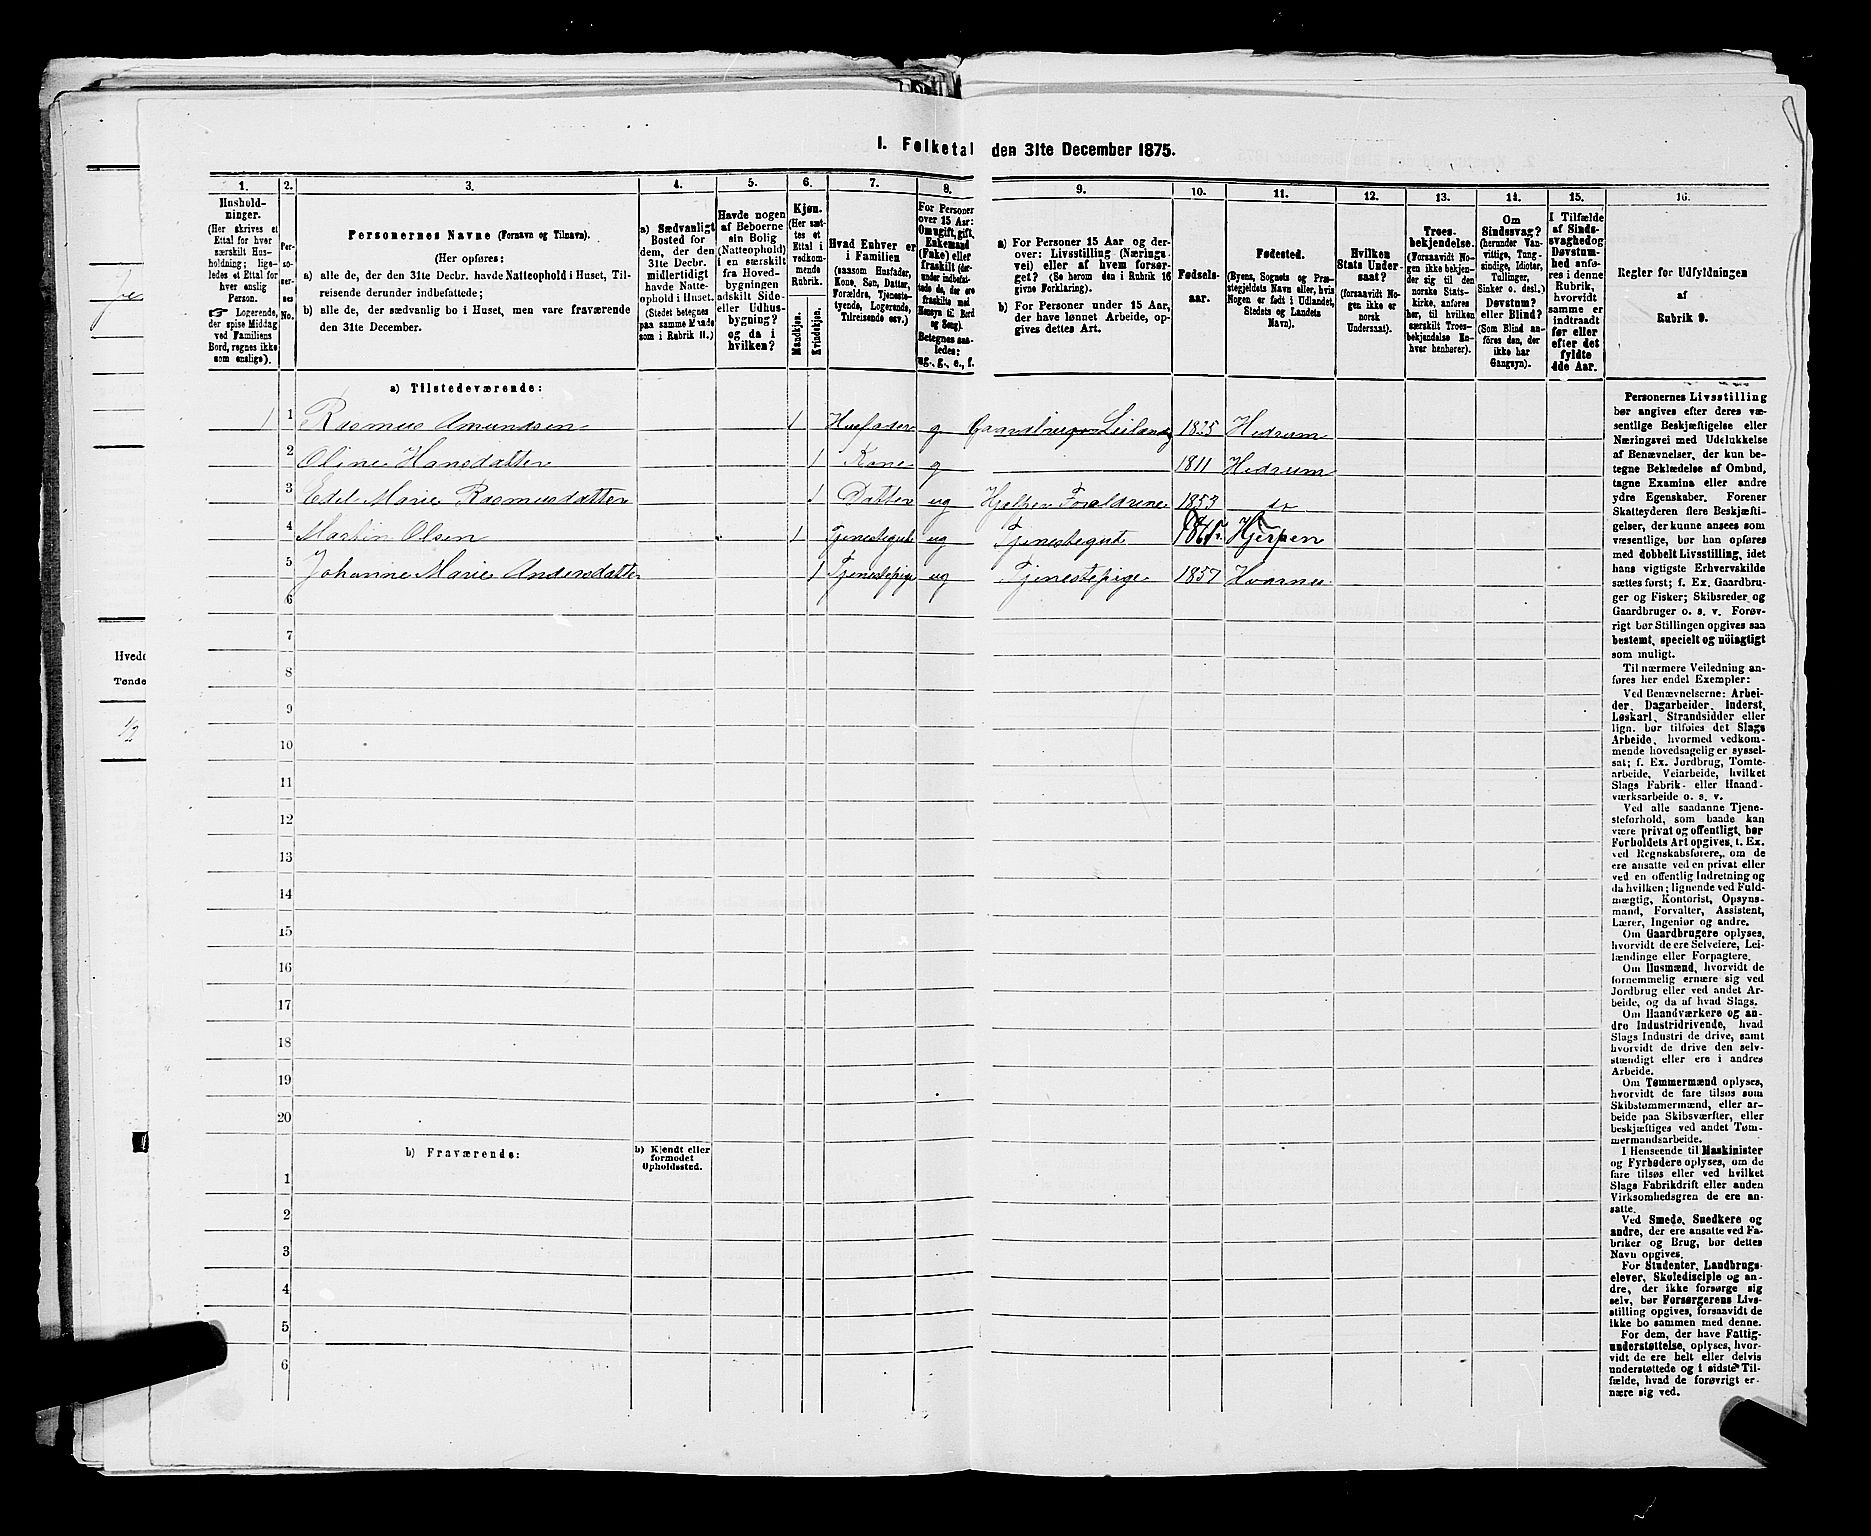 I. Folketal den 31te December 1875.
1. 2. 3. 4. 5. 6. 7. 8. 9. 10. 11. 12. 13. 14. 15. 16.
Hushold-
ninger.
(Her skrives et
Ettal for hver
særskilt Hus-
holdning; lige-
ledes et Ettal for
hver enslig
Person.
☞ Logerende,
der spise Middag
ved Familiens
Bord, regnes ikke
som enslige).
Per-
so-
ner-
nes
No.
Personernes Navne (Fornavn og Tilnavn).
(Her opføres:
a) alle de, der den 31te Decbr. havde Natteophold i Huset, Til-
reisende derunder indbefattede;
b) alle de, der sædvanlig bo i Huset, men vare fraværende
den 31te December.
a) Sædvanligt
Bosted for
dem, der den
31te Decbr.
midlertidigt
havde Natte-
ophold i Huset.
(Stedet betegnes
paa samme Maade
som i Rubrik 11.)
Havde nogen
af Beboerne
sin Bolig
(Natteophold)
i en særskilt
fra Hoved-
bygningen
adskilt Side-
eller Udhus-
bygning?
og da i
hvilken?
Kjøn.
(Her sæt-
tes et
Ettal i
vedkom-
mende
Rubrik.
Mandkjøn.
Kvindekjøn.
Hvad Enhver er
i Familien
(saasom Husfader,
Kone, Søn, Datter,
Forældre, Tjeneste-
tyende, Logerende,
Tilreisende osv.)
For Personer
over 15 Aar:
Om ugift, gift,
Enkemand
(Enke) eller
fraskilt (der-
under indbefat-
tede de, der ere
fraskilte med
Hensyn til Bord
og Seng).
Betegnes saa-
ledes:
ug., g., e., f.
a) For Personer 15 Aar og der-
over: Livsstilling (Nærings-
vei) eller af hvem forsør-
get? (Se herom den i Rubrik 16
givne Forklaring).
b) For Personer under 15 Aar,
der have lønnet Arbeide, op-
gives dettes Art.
Fødsels-
aar.
Fødested.
(Byens, Sognets og Præ-
stegjeldets Navn eller, hvis
Nogen er født i Udlandet,
Stedets og Landets
Navn).
Hvilken
Stats Under-
saat?
(forsaavidt No-
gen ikke er
norsk
Undersaat).
Troes-
bekjendelse.
(Forsaavidt No-
gen ikke bekjen-
der sig til den
norske Stats-
kirke, anføres
her, til hvilken
særskilt Troes-
bekjendelse En-
hver henhører).
Om
Sindssvag?
(herunder Van-
vittige, Tung-
sindige, Idioter,
Tullinger,
Sinker o. desl.)
Døvstum?
eller Blind?
(Som Blind an-
føres den, der
ikke har
Gangsyn).
I Tilfælde
af Sinds-
svaghed og
Døvstum-
hed anfø-
res i denne
Rubrik,
hvorvidt
samme er
indtraadt
før eller
efter det
fyldte
4de Aar.
Regler for Udfyldningen
af
Rubrik 9.
a) Tilstedeværende:
1 1 Rasmus Amundsen 1 Husfader g Gaardbruger Leilænd 1825 Hedrum
2 Oline Hansdatter 1 Kone g 1811 Hedrum
3 Edel Marie Rasmusdatter 1 Datter ug Hjelper Forældrene 1853 do
4 Martin Olsen 1 Tjenestegut ug Tjenestegut Hjerpen
5 Johanne Marie Andersdatter 1 Tjenestepige ug Tjenestepige 1857 Hvarnes
6
7
8
9
10
11
12
13
14
15
16
17
18
19
20
b) Fraværende:
b) Kjendt eller
formodet
Opholdssted.
1
2
3
4
5
6
Personernes Livsstilling
bør angives efter deres væ-
sentlige Beskjæftigelse eller
Næringsvei med Udelukkelse
af Benævnelser, der kun be-
tegne Beklædelse af Ombud,
tagne Examina eller andre
ydre Egenskaber. Forener
Skatteyderen flere Beskjæfti-
gelser, der kunne ansees som
væsentlige, bør han opføres
med dobbelt Livsstilling, idet
hans vigtigste Erhvervskilde
sættes først; f. Ex. Gaardbru-
ger og Fisker; Skibsreder og
Gaardbruger o. s. v. Forøv-
rigt bør Stillingen opgives saa
bestemt, specielt og nöiagtigt
som muligt.
Til nærmere Veiledning an-
føres her endel Exempler:
Ved Benævnelserne: Arbei-
der, Dagarbeider, Inderst,
Løskarl, Strandsidder eller
lign. bør tilføies det Slags
Arbeide, hvormed vedkom-
mende hovedsagelig er syssel-
sat; f. Ex. Jordbrug, Tomte-
arbeide, Veiarbeide, hvilket
Slags Fabrik- eller Haand-
værksarbeide o. s. v.
Ved alle saadanne Tjene-
steforhold, som baade kan
være privat og offentligt, bør
Forholdets Art opgives, t. Ex.
ved Regnskabsførere, om de
ere ansatte ved en privat eller
ved en offentlig Indretning og
da hvilken; lignende ved Fuld-
mægtig, Kontorist, Opsyns-
mand, Forvalter, Assistent,
Lærer, Ingeniør og andre.
Om Gaardbrugere oplyses,
hvorvidt de ere Selveiere, Lei-
lændinge eller Forpagtere.
Om Husmænd, hvorvidt de
fornemmelig ernære sig ved
Jordbrug eller ved andet Ar-
beide, og da af hvad Slags.
Om Haandværkere og an-
dre Industridrivende, hvad
Slags Industri de drive, samt
hvorvidt de drive den selv-
stændigt eller ere i andres
Arbeide.
Om Tømmermænd oplyses,
hvorvidt de fare tilsøs som
Skibstømmermænd, eller ar-
beide paa Skibsværfter, eller
beskjæftiges ved andet Tøm-
mermandsarbeide.
I Henseende til Maskinister
og Fyrbødere oplyses, om de
fare tilsøs eller ved hvilket
Slags Fabrikdrift eller anden
Virksomhedsgren de ere an-
satte.
Ved Smede, Snedkere og
andre, der ere ansatte ved Fa-
briker og Brug, bør dettes
Navn opgives.
For Studenter, Landbrugs-
elever, Skoledisciple og an-
dre, der ikke forsørge sig
selv, bør Forsørgerens Livs-
stilling opgives, forsaavidt de
ikke bo sammen med denne.
For dem, der have Fattig-
understøttelse, oplyses, hvor-
vidt de ere helt eller delvis
understøttede og i sidste Til-
fælde, hvad de forøvrigt er-
nære sig ved.
Hvede
Tønde
1/2